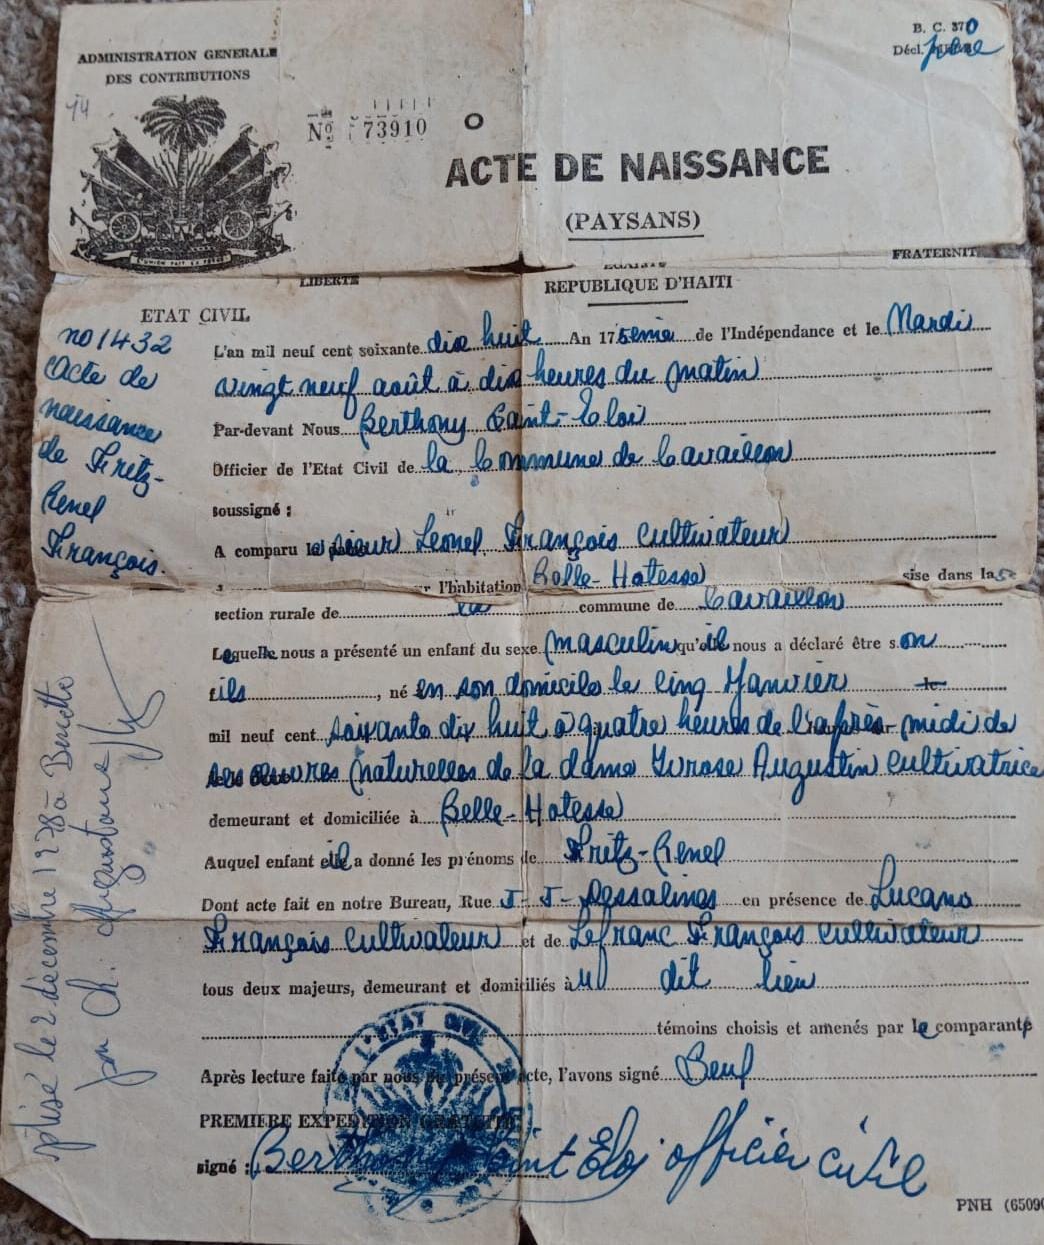 ADMINISTRATION GENERALE
DES CONTRIBUTIONS
B. C. 370
Décl. père
14
Nº 73910 O
ACTE DE NAISSANCE
(PAYSANS)
L'UNION FAIT LA FORCE
LIBERTE EGALITE FRATERNIT
REPUBLIQUE D'HAITI
ETAT CIVIL
no 1432
Acte de
naissance
de Fritz-
Renel
François.
L'an mil neuf cent soixante dix huit An 175ème de l'Indépendance et le Mardi
vingt neuf août à dix heures du matin
Par-devant Nous Berthony Saint-Eloi
Officier de l'Etat Civil de la Commune de Cavaillon
soussigné :
A comparu le sieur Léonel François cultivateur
l'habitation Bolle-Hatesse sise dans la 5e
section rurale de la commune de Cavaillon
Lequel nous a présenté un enfant du sexe masculin qu'il nous a déclaré être son
fils, né en son domicile le cinq Janvier
mil neuf cent soixante dix huit à quatre heures de l'après-midi de
ses œuvres naturelles de la dame Yvrose Augustin cultivatrice
demeurant et domiciliée à Belle-Hatesse
Auquel enfant il a donné les prénoms de Fritz-Renel
Dont acte fait en notre Bureau, Rue J-J-Dessalines en présence de Lucano
François cultivateur et de Lefranc François cultivateur
tous deux majeurs, demeurant et domiciliés à dit lieu
témoins choisis et amenés par le comparant
Après lecture faite par nous du présent acte, l'avons signé Seul
PREMIERE EXPEDITION GRATUITE
signé : Berthony Saint Eloi officier civil
L'ETAT CIVIL
PNH (6509
le 2 décembre 1978 à